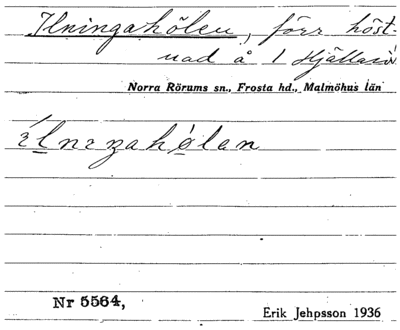 Ilningahölen, förr höst-
nad å 1 Hjällasö
Norra Rörums sn., Frosta hd., Malmöhus län
Nr 5564,
Erik Jehpsson 1936